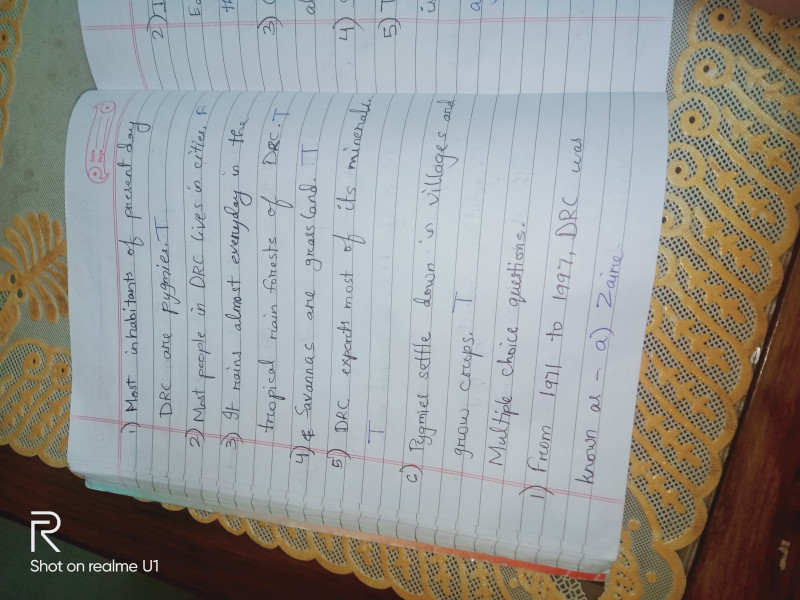 Date
Page
1) Most inhabitants of present day
DRC are pygmies. T
2) Most people in DRC lives in cities. F
3) It rains almost everyday in the
tropical rain forests of DRC. T
4) Savannac are grassland. T
5) DRC exports most of its minerals.
T
6) Pygmies settle down in villages and
grow crops. T
Multiple choice questions.
1) From 1971 to 1997, DRC was
known as - a) Zaire.
2)
3)
4)
5)
R
Shot on realme U1